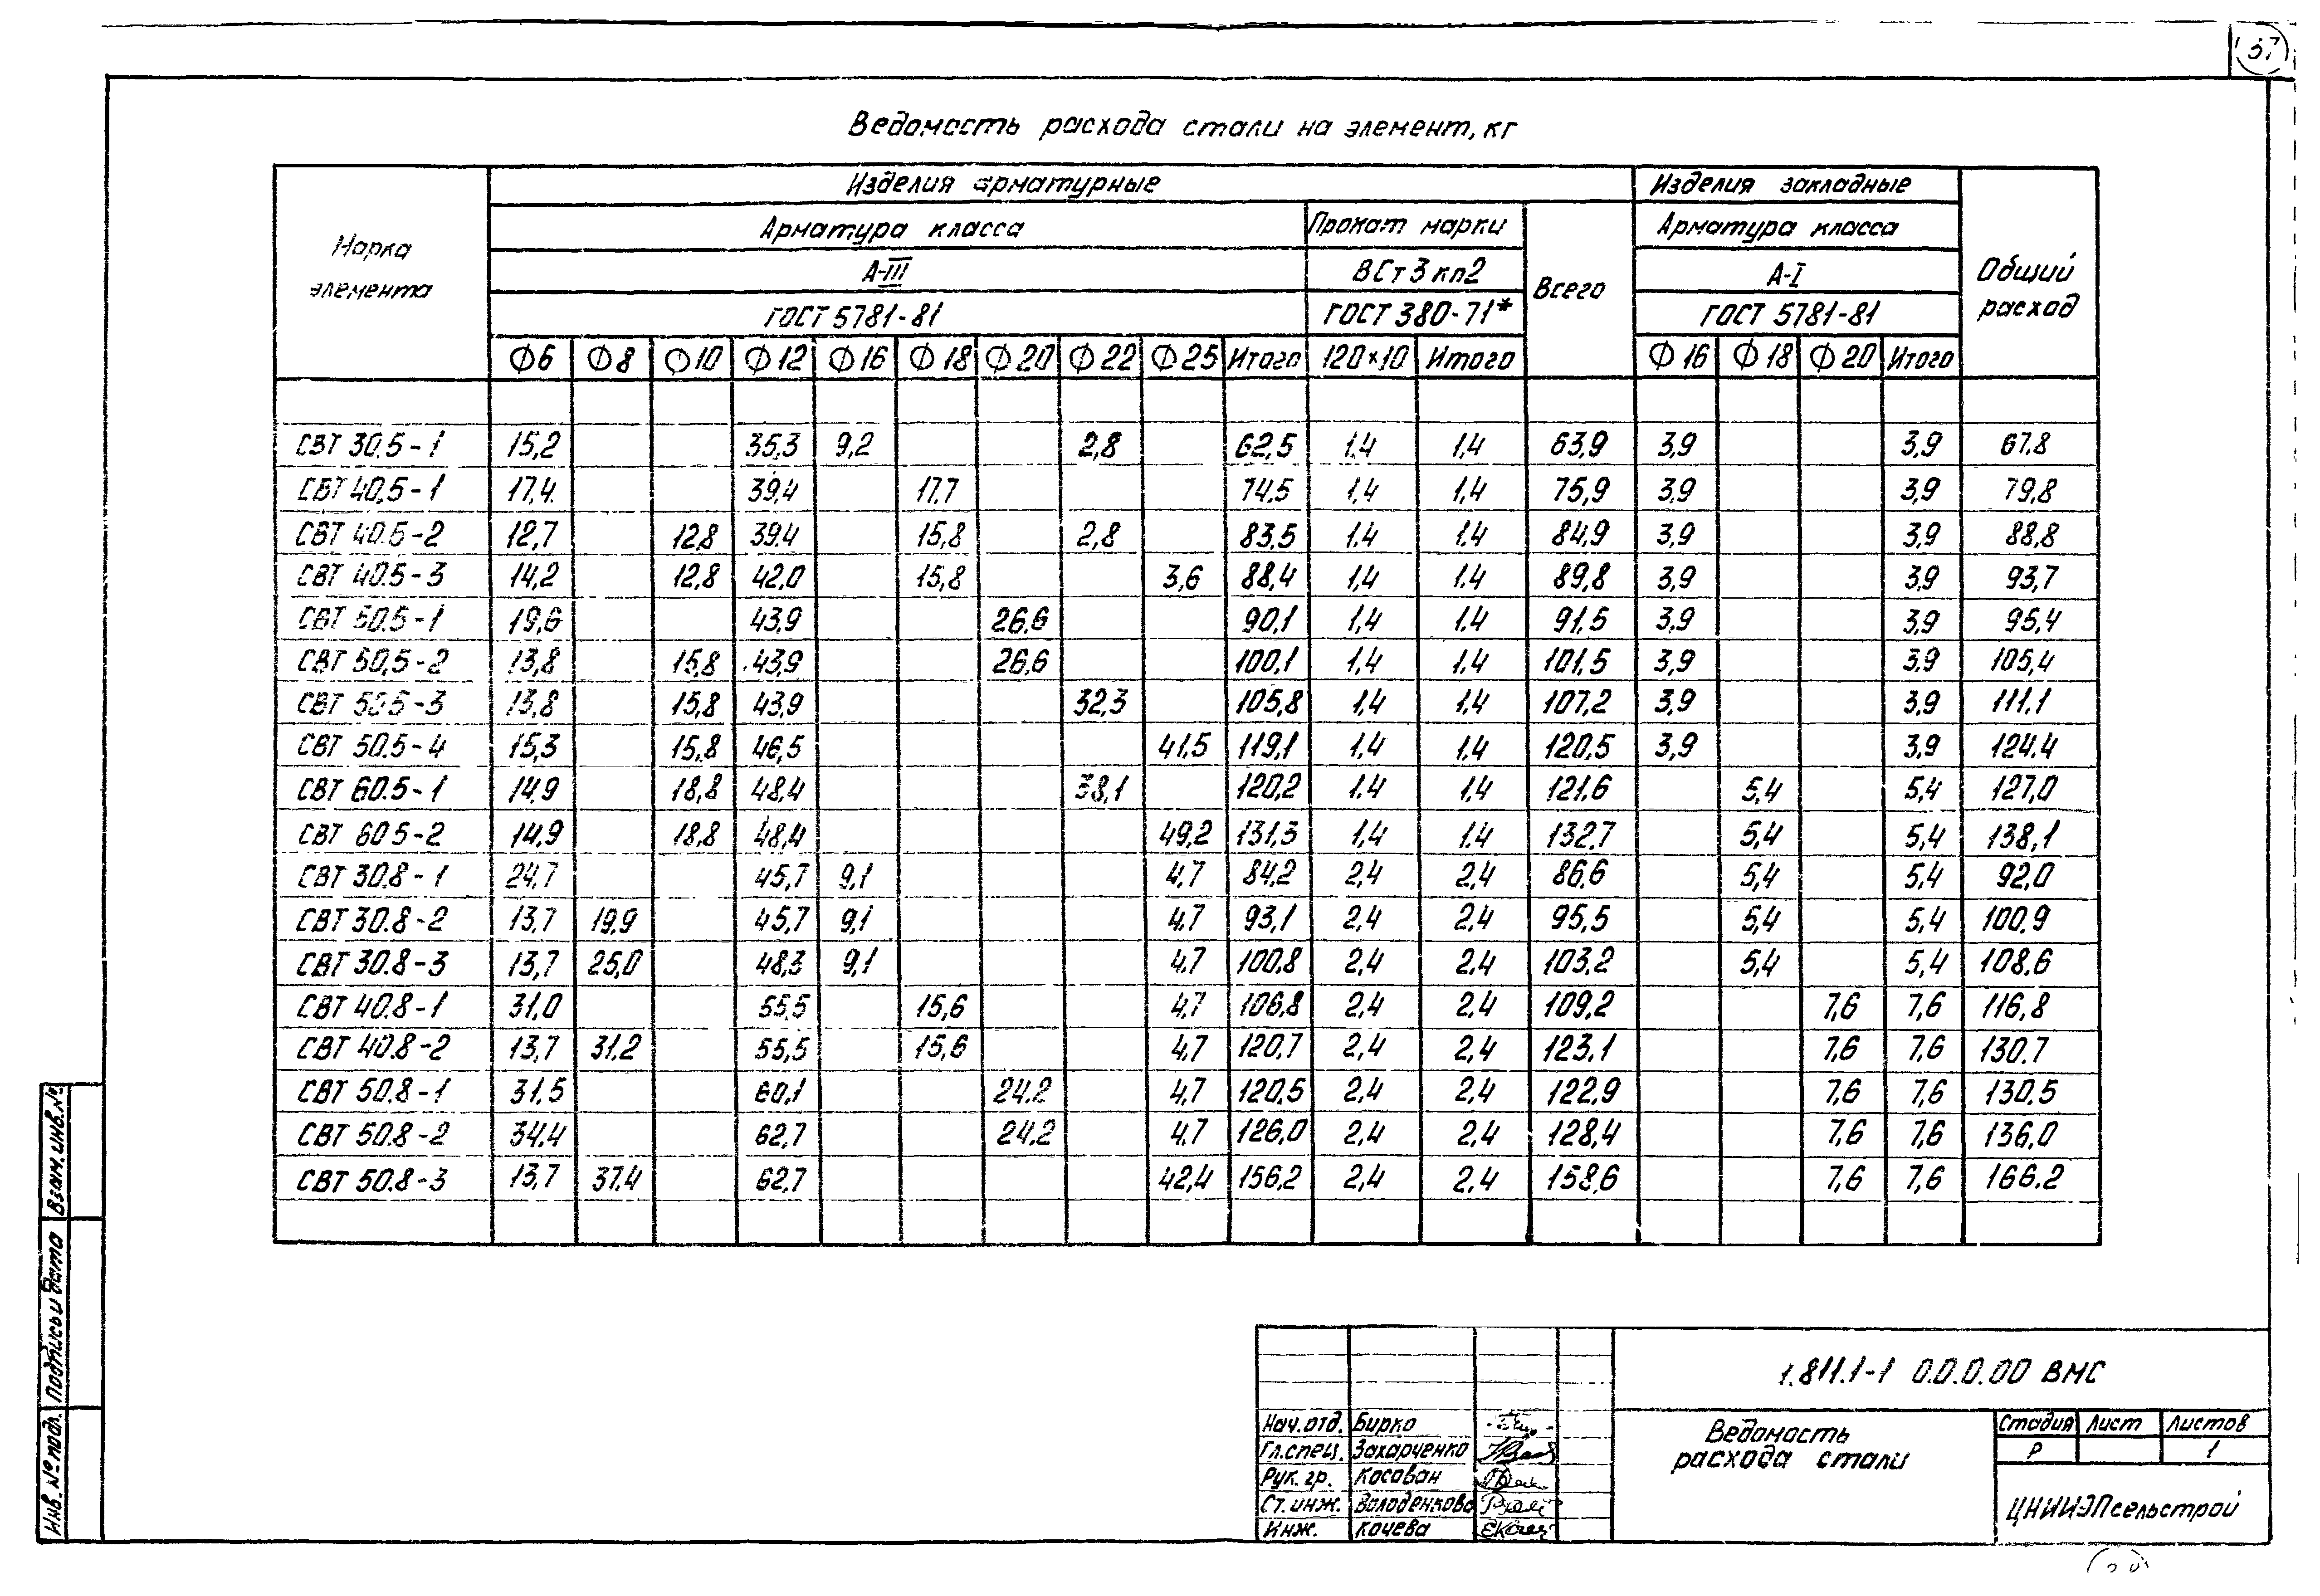 37
Ведомость расхода стали на элемент, кг
Марка элемента
Изделия арматурные
Изделия закладные
Общий расход
Арматура класса
Прокат марки
Всего
Арматура класса
А-III
ВСт3кп2
А-I
ГОСТ 5781-81
ГОСТ 380-71*
ГОСТ 5781-81
Ф6 Ф8 Ф10 Ф12 Ф16 Ф18 Ф20 Ф22 Ф25 Итого 120×10 Итого Ф16 Ф18 Ф20 Итого
СВТ 30.5-1 15,2 35,3 9,2 2,8 62,5 1.4 1,4 63,9 3,9 3,9 67.8
СВТ 40,5-1 17.4. 39,4 17.7 74,5 1,4 1,4 75,9 3,9 3,9 79,8
СВТ 40.5-2 12,7 12,8 39.4 15,8 2,8 83,5 1.4 1.4 84,9 3,9 3,9 88,8
СВТ 40.5-3 14,2 12,8 42.0 15,8 3,6 88,4 1,4 1.4 89,8 3,9 3,9 93,7
СВТ 50.5-1 19,6 43,9 26,6 90,1 1,4 1.4 91,5 3,9 3,9 95,4
СВТ 50,5-2 13,8 15,8 43,9 26,6 100,1 1,4 1.4 101,5 3,9 3,9 105,4
СВТ 50.5-3 13,8 15,8 43,9 32,3 105,8 1,4 1,4 107,2 3,9 3,9 111.1
СВТ 50.5-4 15,3 15,8 46,5 41,5 119,1 1,4 1.4 120,5 3,9 3,9 124.4
СВТ 60.5-1 14,9 18,8 48,4 38,1 120,2 1.4 1,4 121,6 5,4 5,4 127,0
СВТ 60 5-2 14,9 18,8 48,4 49,2 131,3 1,4 1.4 132,7 5,4 5,4 138,1
СВТ 30.8-1 24,7 45,7 9,1 4,7 84,2 2,4 2,4 86,6 5,4 5,4 92,0
СВТ 30.8-2 13,7 19,9 45,7 9,1 4,7 93,1 2,4 2,4 95,5 5,4 5,4 100,9
СВТ 30.8-3 13,7 25,0 48,3 9,1 4,7 100,8 2,4 2,4 103,2 5,4 5,4 108,6
СВТ 40.8-1 31,0 55,5 15,6 4,7 106,8 2,4 2,4 109,2 7,6 7,6 116,8
СВТ 40.8-2 13,7 31,2 55,5 15,6 4,7 120,7 2,4 2,4 123,1 7,6 7,6 130.7
СВТ 50.8-1 31,5 60,1 24.2 4,7 120,5 2,4 2,4 122,9 7,6 7,6 130,5
СВТ 50.8-2 34.4 62,7 24,2 4,7 126,0 2,4 2,4 128,4 7,6 7,6 136,0
СВТ 50.8-3 13,7 37.4 62,7 42,4 156,2 2,4 2.4 158,6 7,6 7,6 166.2
Взам.инв.№
Подпись и дата
Инв. № подл.
1.811.1-1 0.0.0.00 ВМС
Нач.отд. Бирко
Гл.спец. Захарченко
Рук. гр. Косован
Ст.инж. Володенкова
Инж. Кочева
Ведомость
расхода стали
Стадия Лист Листов
Р 1
ЦНИИЭПсельстрой